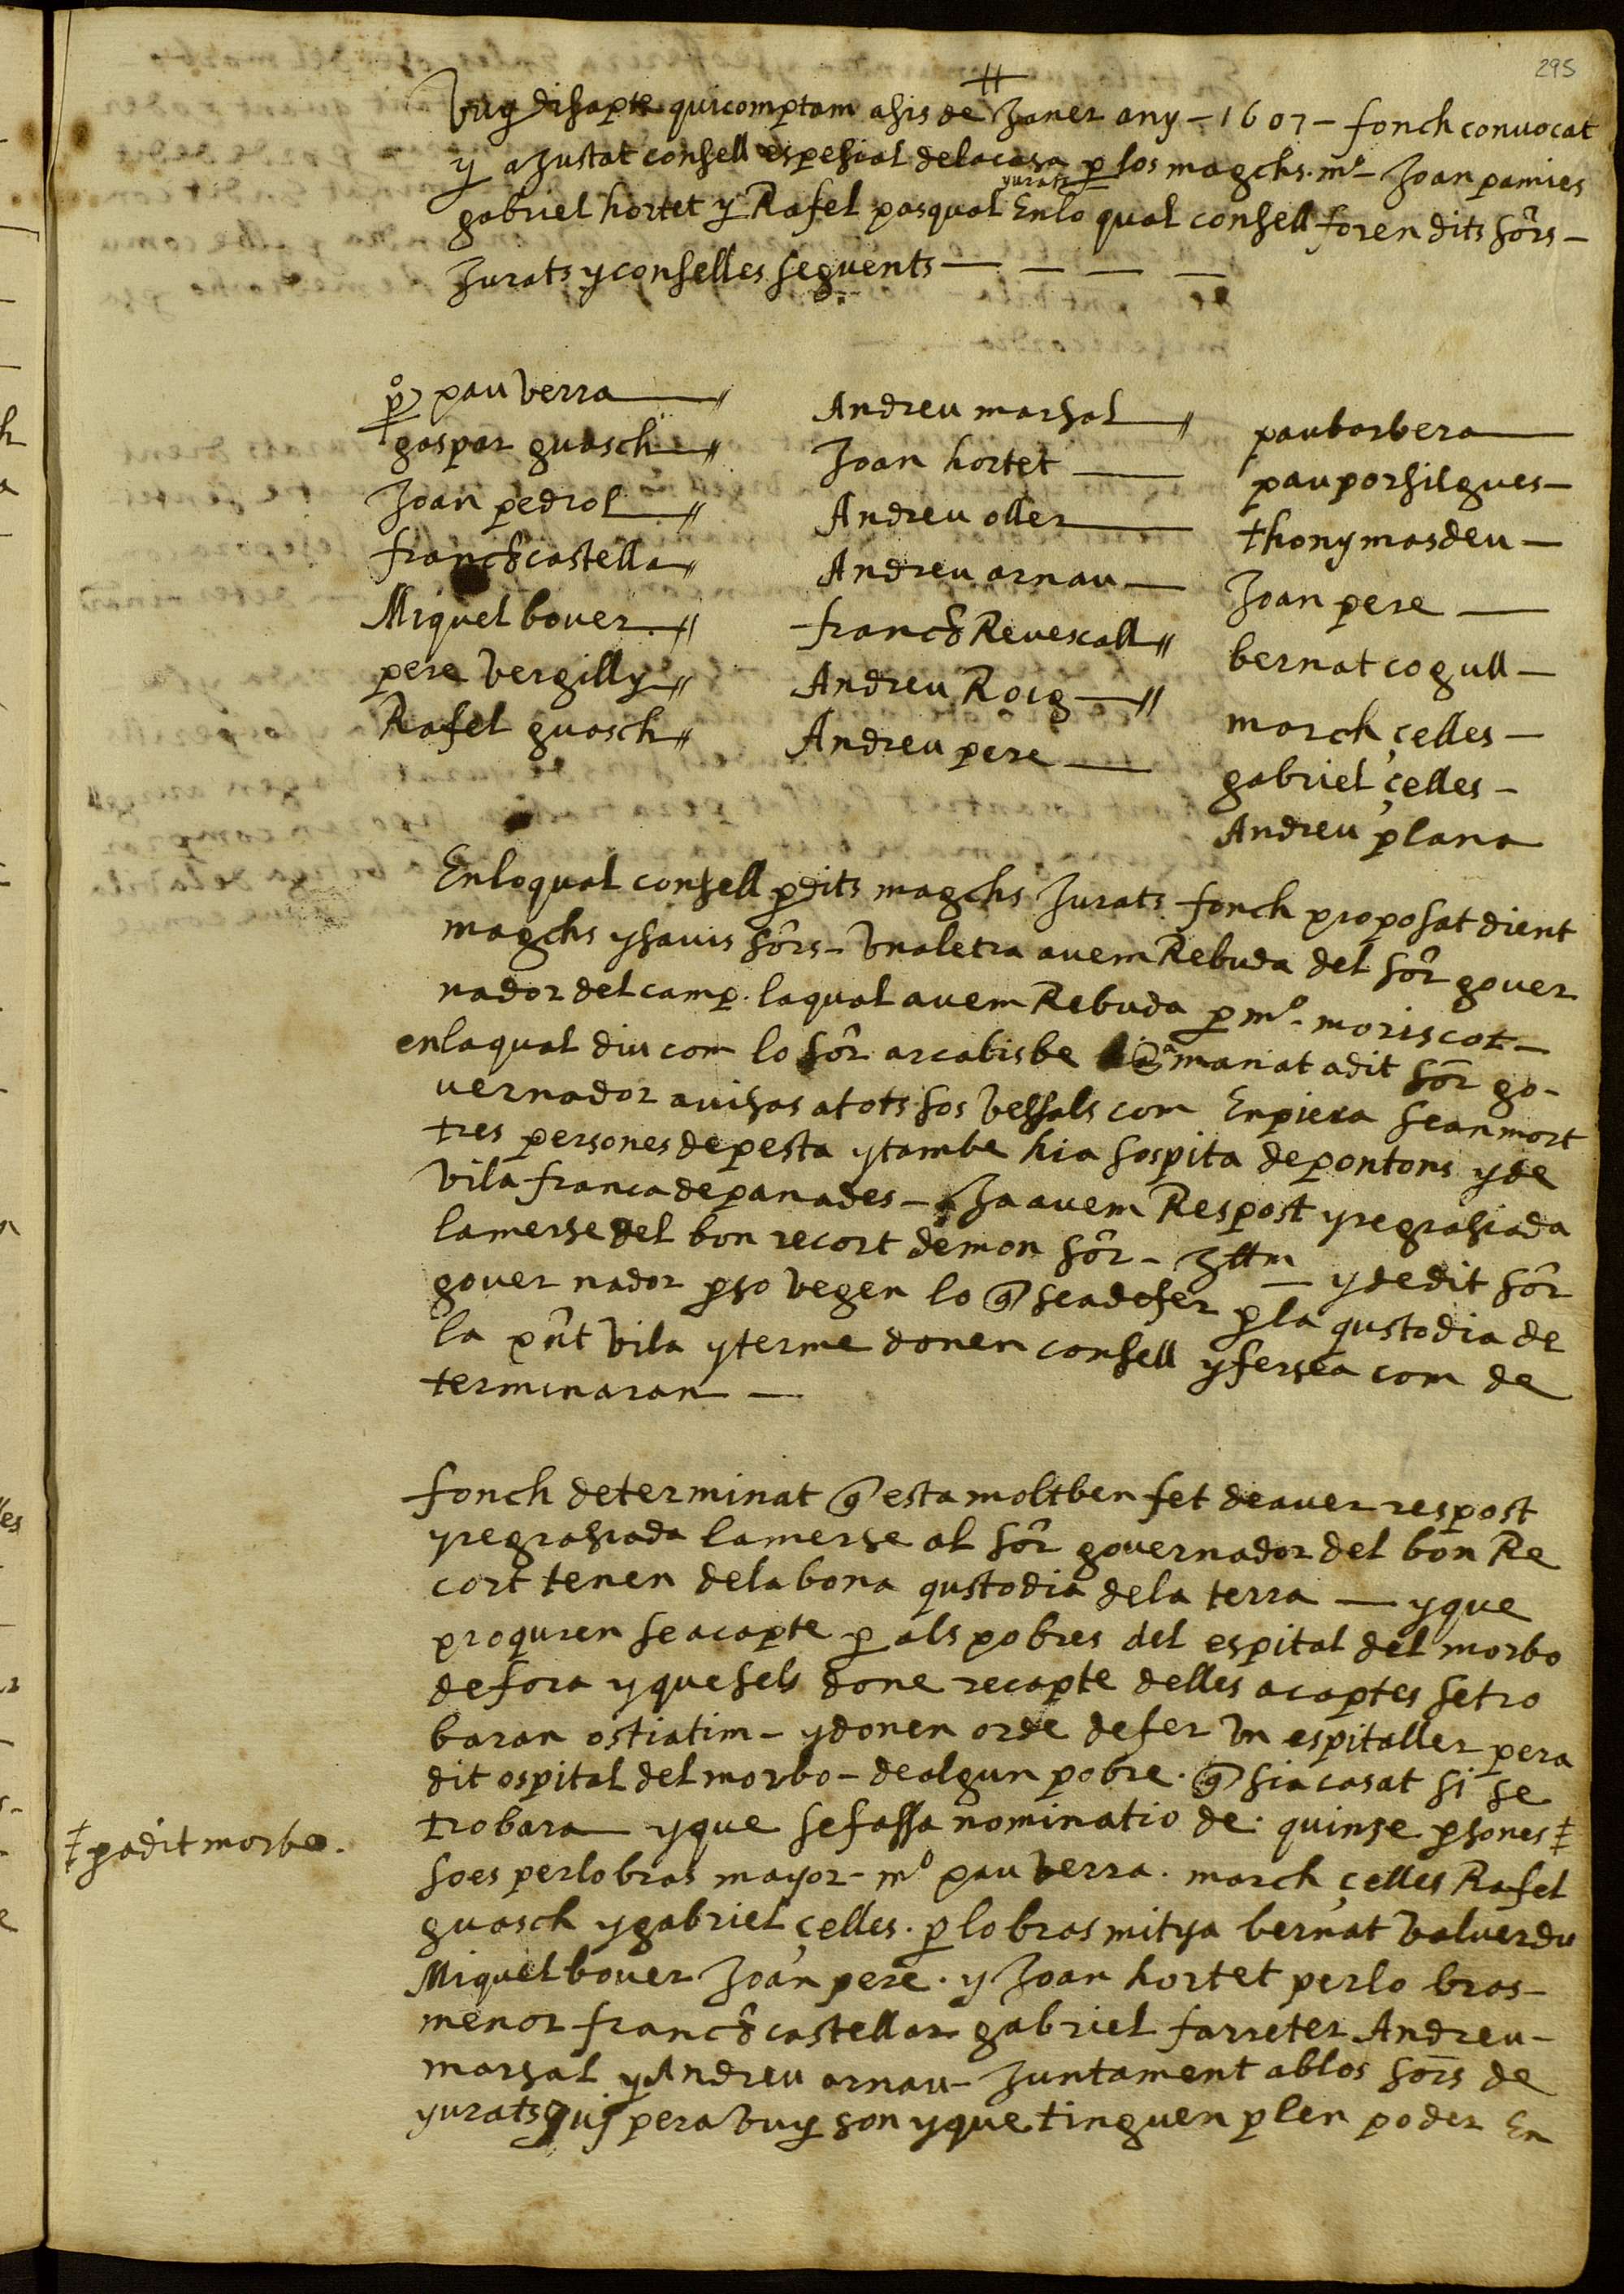 295
Vuy disapte quicomptam asis de Janer any - 1607 - fonch convocat
y aJustat consell espesial delacasa p los magchs. mº Joan pamies
yurats
gabriel hortet y Rafel pasqual Enlo qual consell foren dits sors -
Jurats yconselles seguents - - - -
pº pau verra
gaspar guasch
Joan pedrol
franco castella
Miquel bover
pere vergilly
Rafel guasch
Andreu marsal
Joan hortet
Andreu oller
Andreu arnau
franco Revescall
Andreu Roig
Andreu pere
pau barbera
pau porsilgues
thony masdeu
Joan pere
bernat cogull
march çelles
gabriel çelles
Andreu plana
Enloqual consell pdits magchs Jurats fonch proposat dient
magchs ysavis sors - Vnaletra avem Rebuda del sor gover
nador del camp. laqual avem Rebuda p mº. moriscot -
enlaqual diu com lo sor arcabisbe a manat adit sor go-
vernador avisas atots sos vessals com Enpiera sean mort
tres persones depesta ytambe hia sospita depontons yde
vila franca depanades - Ja avem Respost yregrasiada
lamerse del bon recort demon sor - Jllm ydedit sor
gover nador pso vegen lo q seadefer pla qustodia de
la pnt vila yterme donen consell yfersea com de
terminaran -
fonch determinat q esta moltben fet deaver respost
yregrasiada lamerse al sor governador del bon Re
cort tenen delabona qustodia dela terra - yque
proquren seacapte p als pobres del espital del morbo
defora yquesels done recapte delles acaptes setro
baran ostiatim - ydonen orde defer vn espitaller pera
dit ospital del morbo - dealgun pobre. q sia casat si se
trobara yque sefassa nominatio de. quinse psones ‡
‡ padit morbo.
soes perlobras mayor - mº pau verra. march çelles Rafel
guasch ygabriel çelles. p lo bras mitya bernat valverdu
Miquel bover Joan pere. y Joan hortet perlo bras -
menor franco castellar gabriel farreter Andreu -
marsal y Andreu arnau - Juntament ablos sors de
yurats qui pera vuy son yque tinguen plen poder En